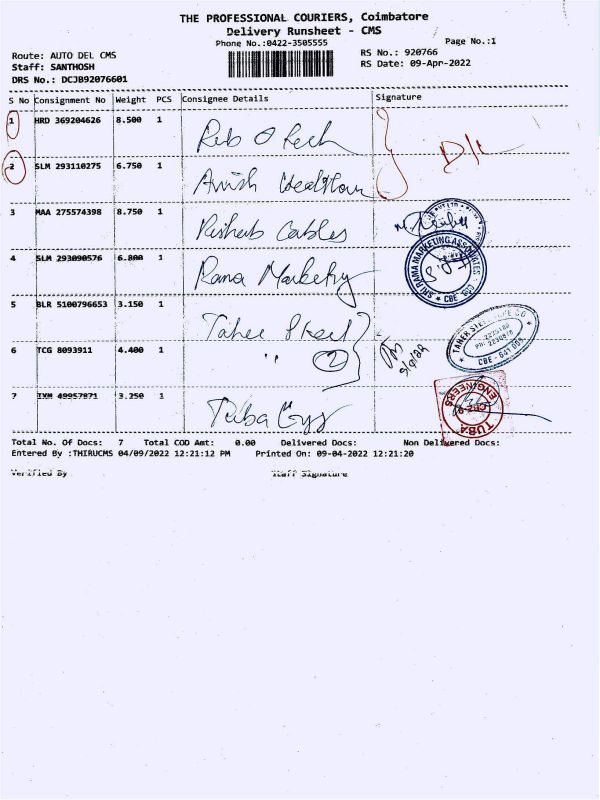 THE PROFESSIONAL COURIERS, Coimbatore
Delivery Runsheet - CMS
Phone No.:0422-3505555
Page No.:1
Route: AUTO DEL CMS
RS No.: 920766
Staff: SANTHOSH
RS Date: 09-Apr-2022
DRS No.: DCJB92076601
S No Consignment No Weight PCS Consignee Details Signature
1 HRD 369204626 8.500 1
D/L
2 SLM 293110275 6.750 1
3 MAA 275574398 8.750 1 Rishab Cables
4 SLM 293090576 6.800 1 Rama Marketing
SRI RAMA MARKETING ASSOCIATES
CBE
5 BLR 5100796653 3.150 1 Taher Steel
6 TCG 8093911 4.400 1 " (2)
TAHER STEEL
CBE - 641 001
7 IXM 49957871 3.250 1 Tuba Eng
TUBA ENGINEERS
Total No. Of Docs: 7 Total COD Amt: 0.00 Delivered Docs: Non Delivered Docs:
Entered By :THIRUCMS 04/09/2022 12:21:12 PM Printed On: 09-04-2022 12:21:20
Verified By Staff Signature